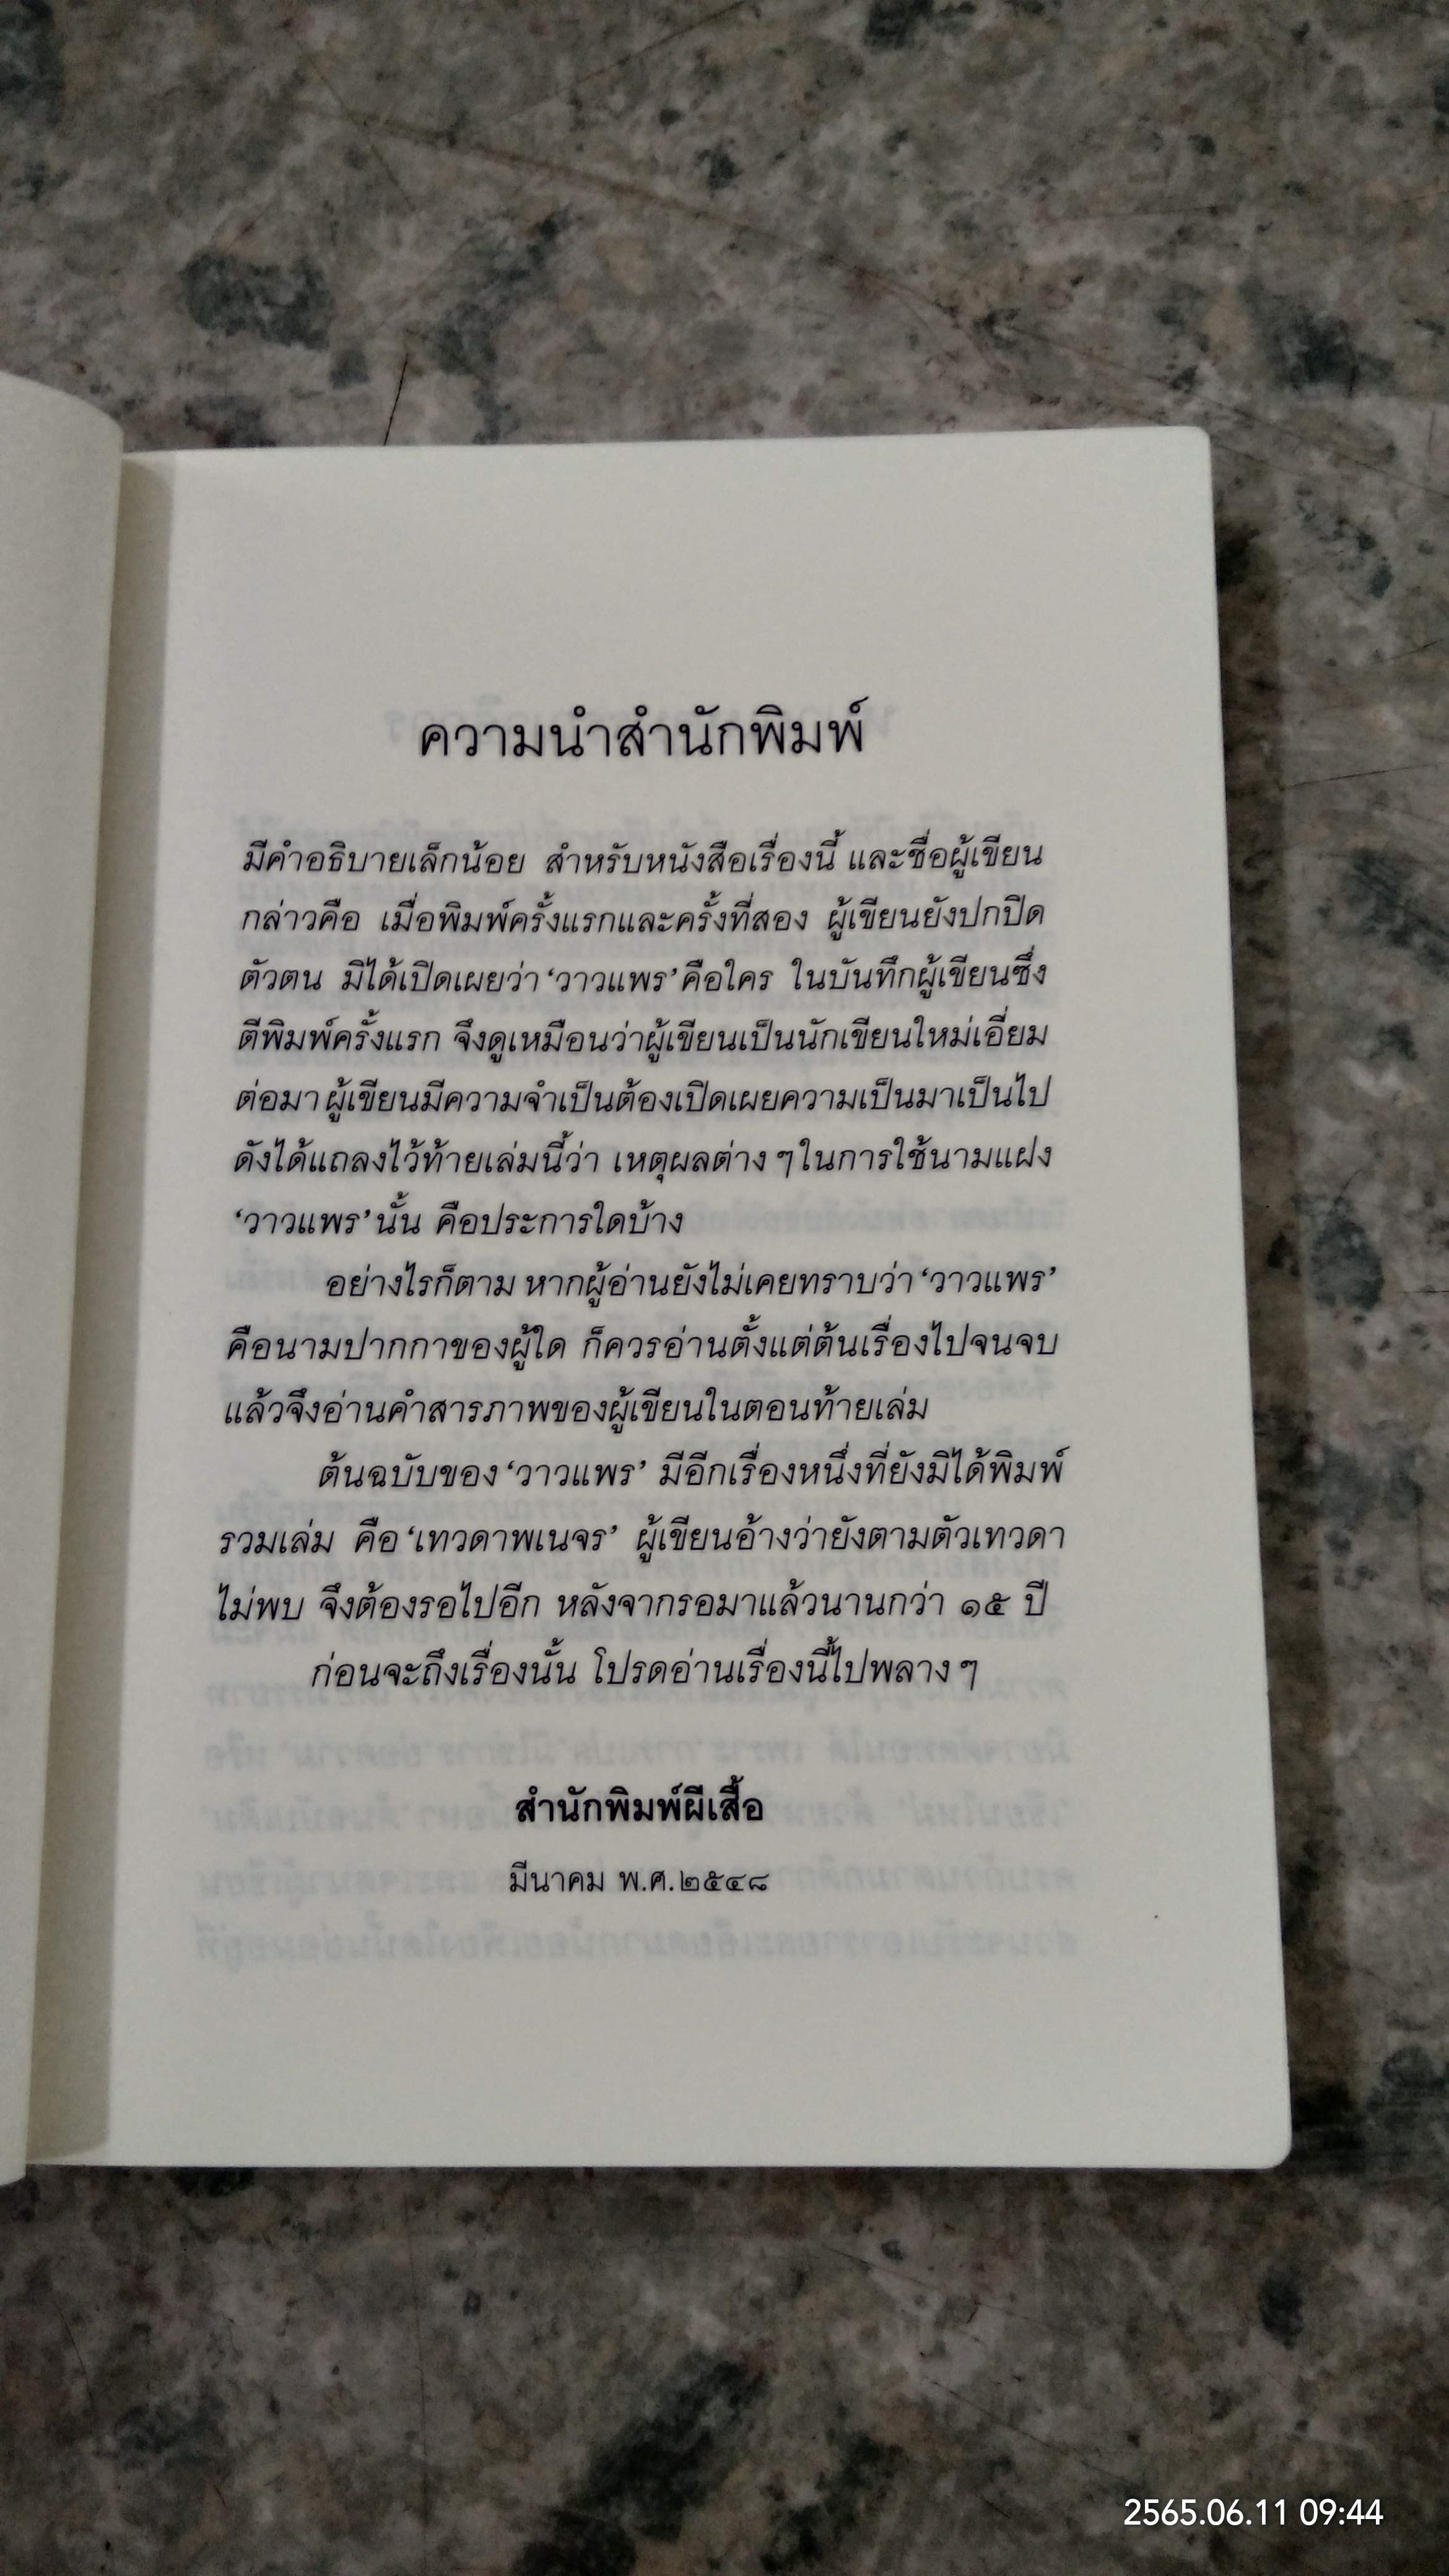 ความนำสำนักพิมพ์
มีคำอธิบายเล็กน้อย สำหรับหนังสือเรื่องนี้ และชื่อผู้เขียน
กล่าวคือ เมื่อพิมพ์ครั้งแรกและครั้งที่สอง ผู้เขียนยังปกปิด
ตัวตน มิได้เปิดเผยว่า ‘วาวแพร’ คือใคร ในบันทึกผู้เขียนซึ่ง
ตีพิมพ์ครั้งแรก จึงดูเหมือนว่าผู้เขียนเป็นนักเขียนใหม่เอี่ยม
ต่อมา ผู้เขียนมีความจำเป็นต้องเปิดเผยความเป็นมาเป็นไป
ดังได้แถลงไว้ท้ายเล่มนี้ว่า เหตุผลต่าง ๆ ในการใช้นามแฝง
‘วาวแพร’ นั้น คือประการใดบ้าง
อย่างไรก็ตาม หากผู้อ่านยังไม่เคยทราบว่า ‘วาวแพร’
คือนามปากกาของผู้ใด ก็ควรอ่านตั้งแต่ต้นเรื่องไปจนจบ
แล้วจึงอ่านคำสารภาพของผู้เขียนในตอนท้ายเล่ม
ต้นฉบับของ ‘วาวแพร’ มีอีกเรื่องหนึ่งที่ยังมิได้พิมพ์
รวมเล่ม คือ ‘เทวดาพเนจร’ ผู้เขียนอ้างว่ายังตามตัวเทวดา
ไม่พบ จึงต้องรอไปอีก หลังจากรอมาแล้วนานกว่า ๑๕ ปี
ก่อนจะถึงเรื่องนั้น โปรดอ่านเรื่องนี้ไปพลาง ๆ
สำนักพิมพ์ผีเสื้อ
มีนาคม พ.ศ.๒๕๔๘
2565.06.11 09:44